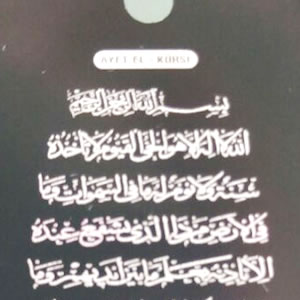 AYET EL - KÜRSİ
بسم الله الرحمن الرحيم
الله لا اله الا هو الحي القيوم لا تأخذه
سنة ولا نوم له ما في السموات وما
في الارض من ذا الذي يشفع عنده
الا باذنه يعلم ما بين ايديهم وما